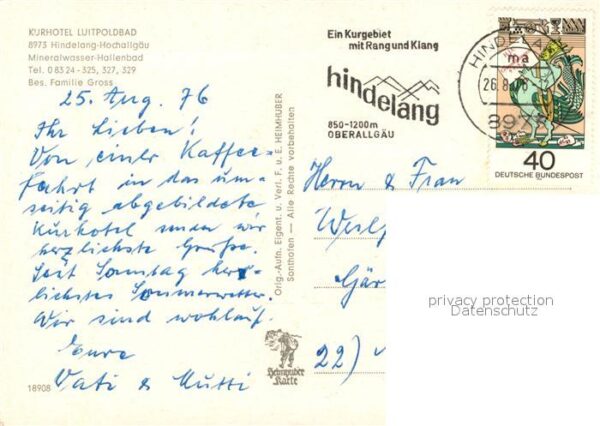 KURHOTEL LUITPOLDBAD
8973 Hindelang-Hochallgäu
Mineralwasser-Hallenbad
Tel. 0 83 24 - 325, 327, 329
Bes. Familie Gross
25. Aug. 76
Ihr Lieben!
Von einer Kaffee-
fahrt in das um-
seitig abgebildete
Kurhotel senden wir
herzlichste Grüße.
Seit Sonntag herr-
lichstes Sommerwetter.
Wir sind wohlauf.
Eure
Vati & Mutti
18908
Orig.-Aufn. Eigent. u. Verl. F. u. E. HEIMHUBER
Sonthofen — Alle Rechte vorbehalten
Heimhuber
Karte
Ein Kurgebiet
mit Rang und Klang
hindelang
850-1200m
OBERALLGÄU
HINDELANG
26.8.76
8973
ma
40
DEUTSCHE BUNDESPOST
Herrn & Frau
22)
privacy protection
Datenschutz